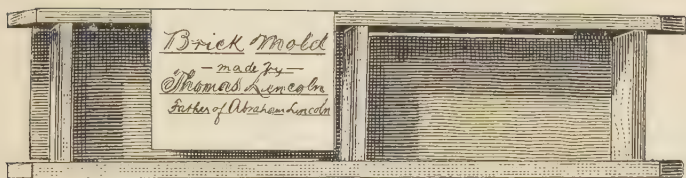 Brick Mold
- made by -
Thomas Lincoln
Father of Abraham Lincoln